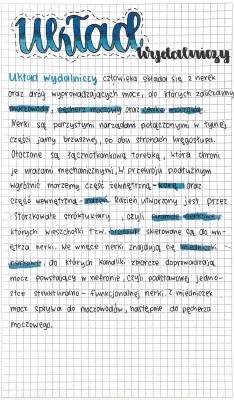 Układ
wydalniczy
Układ wydalniczy człowieka składa się z nerek
oraz dróg wyprowadzających mocz, do których zaliczamy
moczowody, pęcherz moczowy oraz cewkę moczową.
Nerki są parzystymi narządami położonymi w tylnej
części jamy brzusznej, po obu stronach kręgosłupa.
Otoczone są łącznotkankową torebką, która chroni
je urazami mechanicznymi, W przekroju podłużnym
wyróżnić możemy część zewnętrzną - korę oraz
część wewnętrzną - rdzeń. Rdzeń utworzony jest przez
stożkowate struktury, czyli piramidy nerkowe,
których wierzchołki tzw. skierowane są do wn-
ętrza nerki. We wnęce nerki znajdują się miedniczki
nerkowe, do których kanaliki zbiorcze doprowadzają
mocz powstający w nefronie, czyli podstawowej jedno-
stce strukturalno - funkcjonalnej nerki. Z miedniczek
mocz spływa do moczowodów, następnie do pęcherza
moczowego.